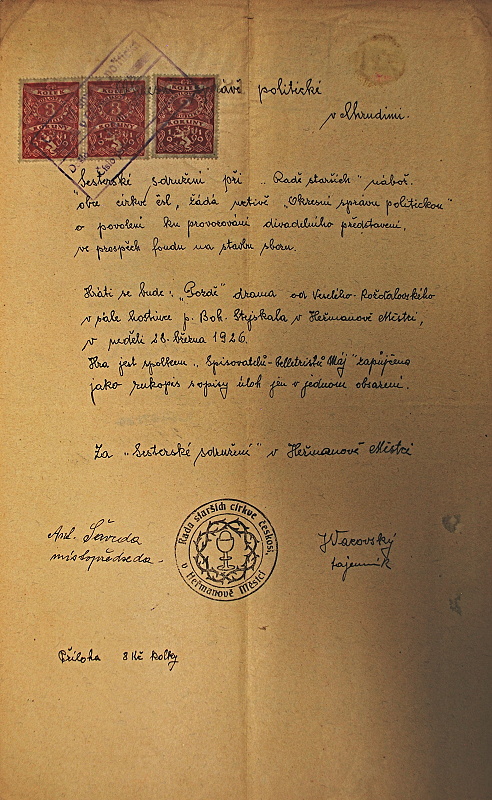 KOLEK
3
KORUNY
KOLEK
3
KORUNY
KOLEK
2
KORUNY
správě politické
v Chrudimi.
"Sesterské sdružení při „Radě starších" nábož.
obce církve čsl, žádá uctivě „Okresní správu politickou"
o povolení ku provozování divadelního představení,
ve prospěch fondu na stavbu sboru.
Hráti se bude: „Pozdě" drama od Veselého-Rožďalovského
v sále hostince p. Boh. Stýskala v Heřmanově Městci,
v neděli 28. března 1926.
Hra jest spolkem „Spisovatelů-belletristů Máj" zapůjčena
jako rukopis s opisy úloh jen v jednom obsazení.
Za „Sesterské sdružení" v Heřmanově Městci
Ant.
místopředseda.
Rada starších církve českosl.
v Heřmanově Městci
JVacovský
tajemník
Příloha 8 Kč kolky